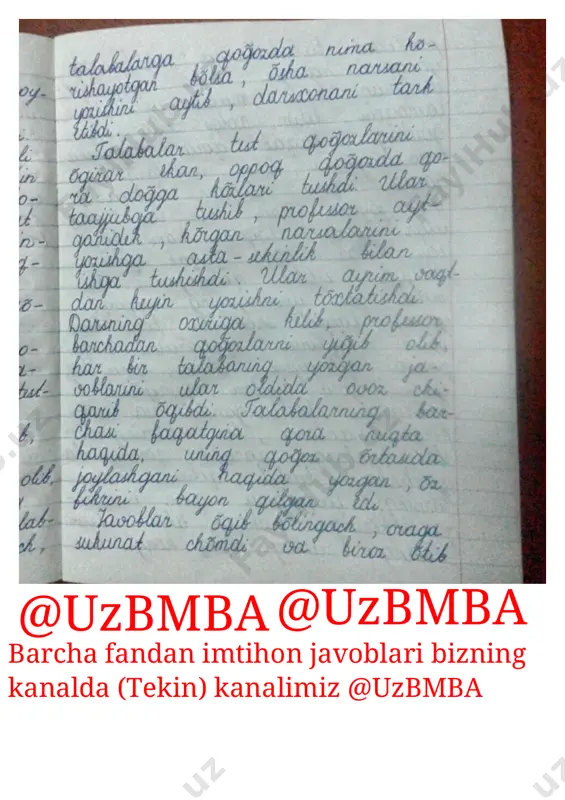 talabalarga qoğozda nima kõ-
rishayotgan bõlsa, õsha narsani
yozishini aytib, darsxonani tark
etibdi.
Talabalar test qoğozlarini
õgirar ekan, oppoq qoğozda qo-
ra doğga kõzlari tushdi. Ular
taajjubga tushib, professor ayt-
ganidek, kõrgan narsalarini
yozishga asta-sekinlik bilan
ishga tushishdi. Ular ayrim vaqt-
dan keyin yozishni tõxtatishdi.
Darsning oxiriga kelib, professor
barchadan qoğozlarni yiğib olib,
har bir talabaning yozgan ja-
voblarini ular oldida ovoz chi-
qarib õqibdi. Talabalarning bar-
chasi faqatgina qora nuqta
haqida, uning qoğoz õrtasida
joylashgani haqida yozgan, õz
fikrini bayon qilgan edi.
Javoblar õqib bõlingach, oraga
sukunat chõmdi va biroz õtib
oy-
li
in
o-
n-
test-
olib,
lab-
ch,
@UzBMBA @UzBMBA
Barcha fandan imtihon javoblari bizning
kanalda (Tekin) kanalimiz @UzBMBA
FaylHub.uz
uz
uz